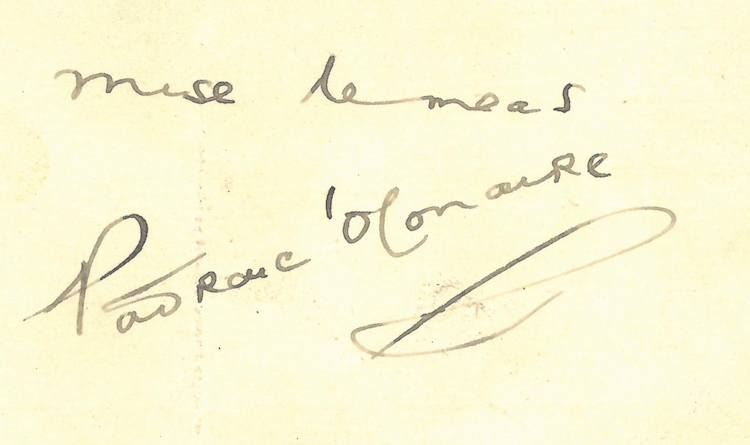 mise le meas
Pádraic Ó Conaire